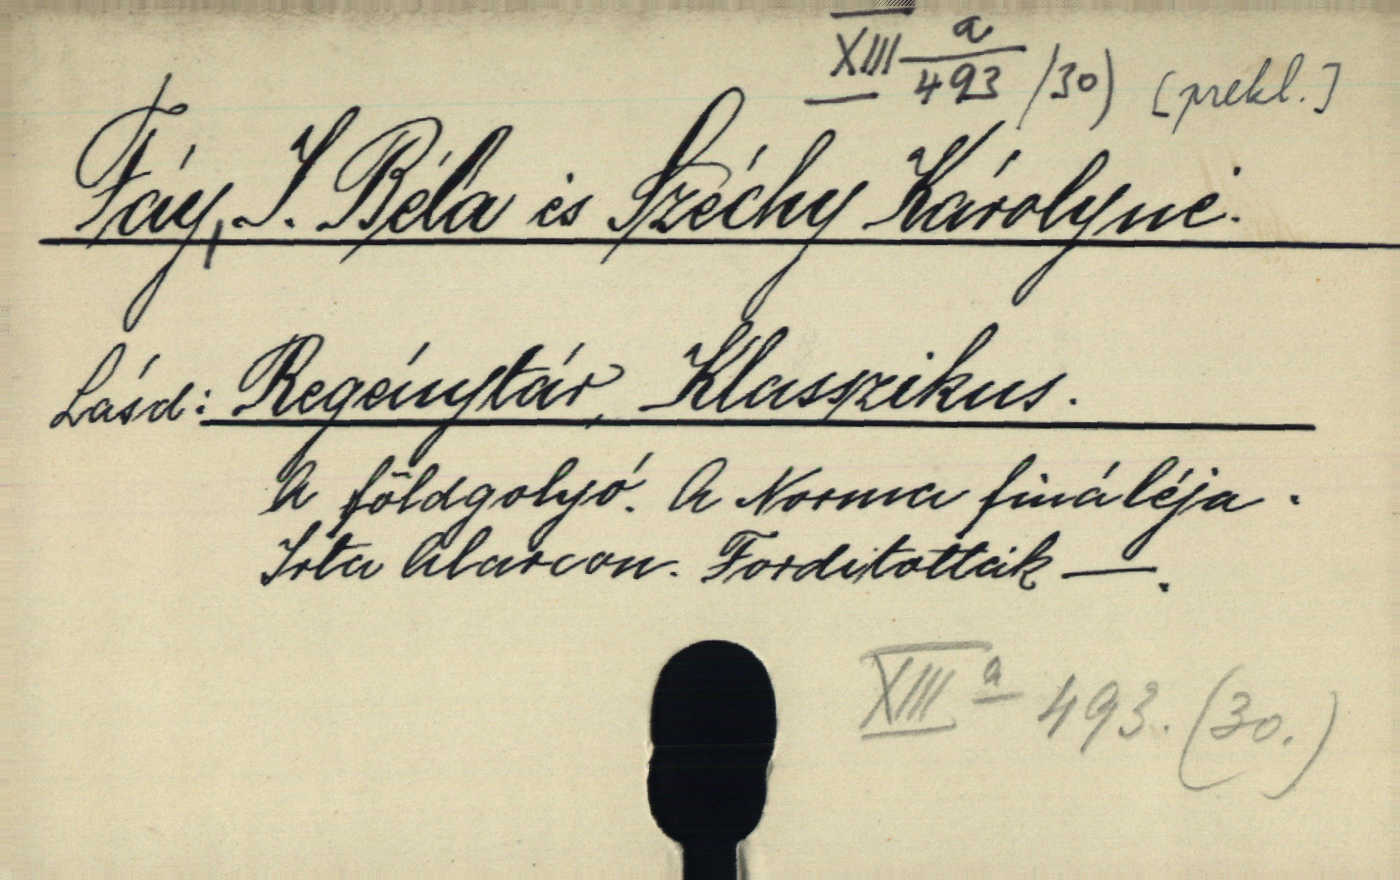 XIII a/493 /30) [prekl.]
Fáy, I. Béla és Széchy Károlyné.
Lásd: Regénytár, Klasszikus.
A földgolyó. A Norma fináléja.
Irta Alarcon. Forditották —.
XIII a 493. (30.)